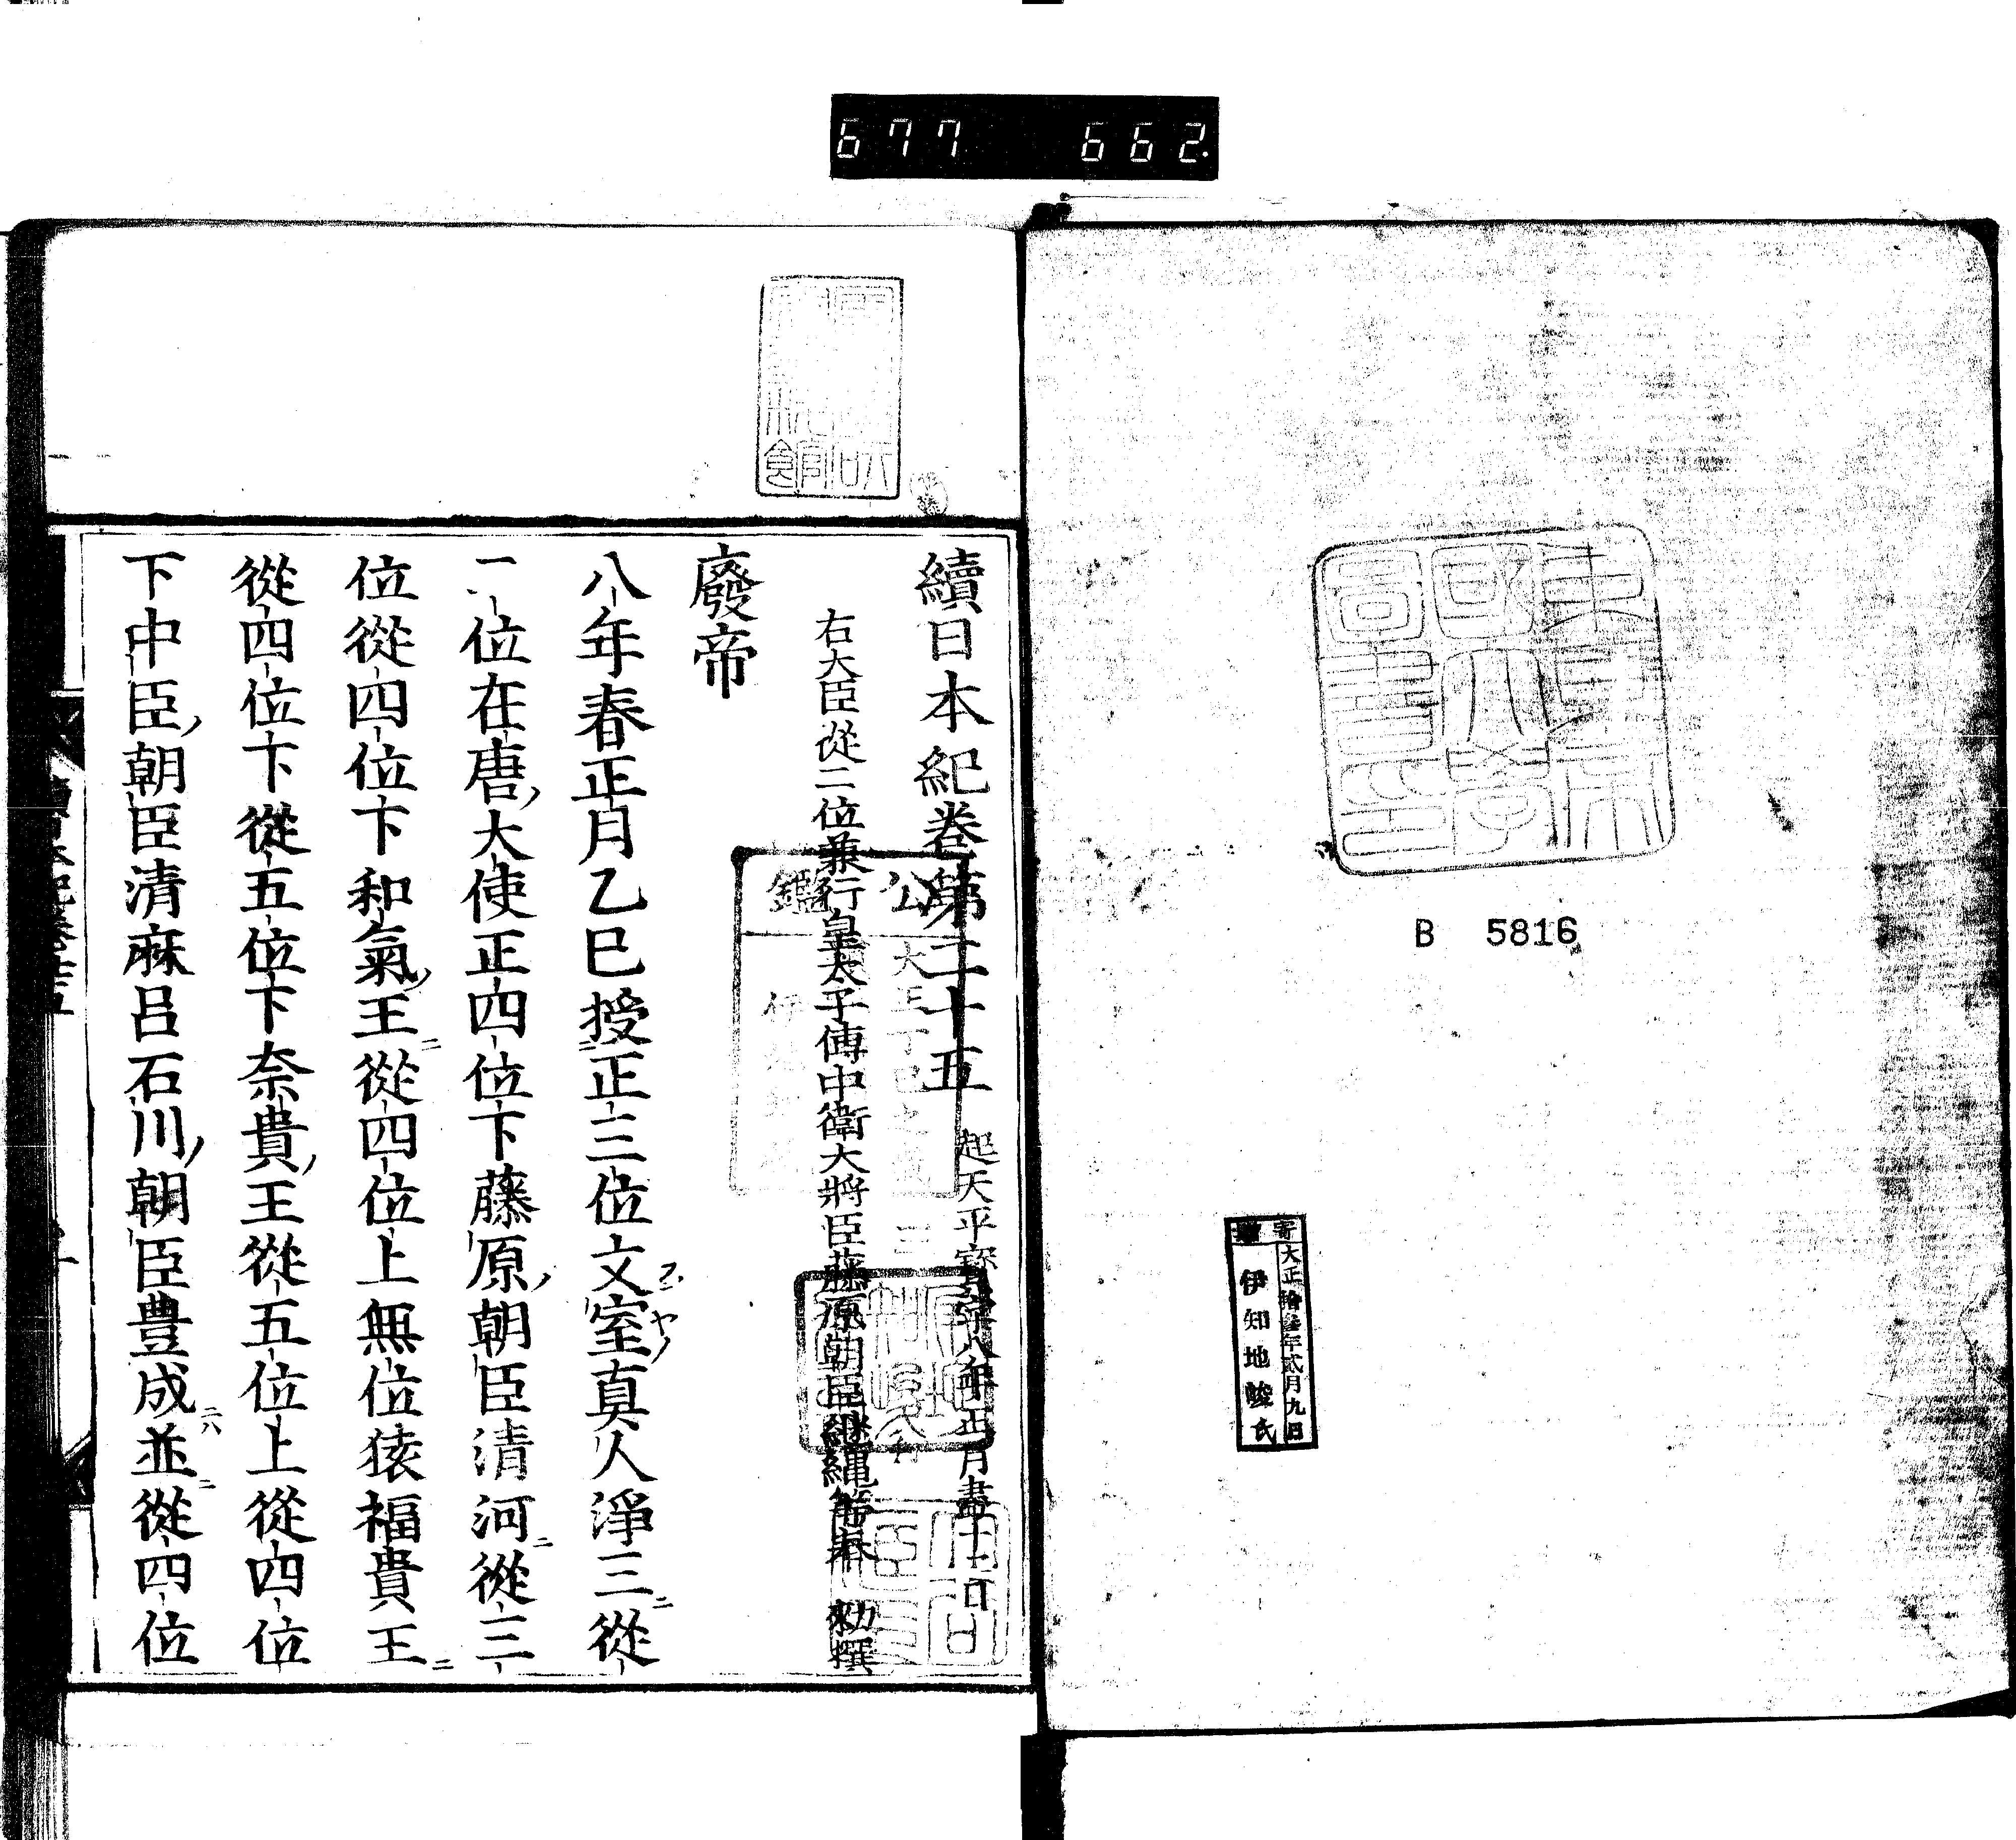 677 662.
東京
帝國大學
圖書印
B 5816
寄贈
大正拾參年貳月九日
伊知地峻氏
續日本紀卷第二十五 起天平寶字八年正月盡十二月
右大臣從二位兼行皇太子傅中衛大將臣藤原朝臣繼繩等奉 勅撰
廢帝
八年春正月乙巳授正三位文室真人淨三從
二位在唐大使正四位下藤原朝臣清河從三
位從四位下和氣王從四位上無位猿福貴王
從四位下從五位下奈貴王從五位上從四位
下中臣朝臣清麻呂石川朝臣豊成並從四位